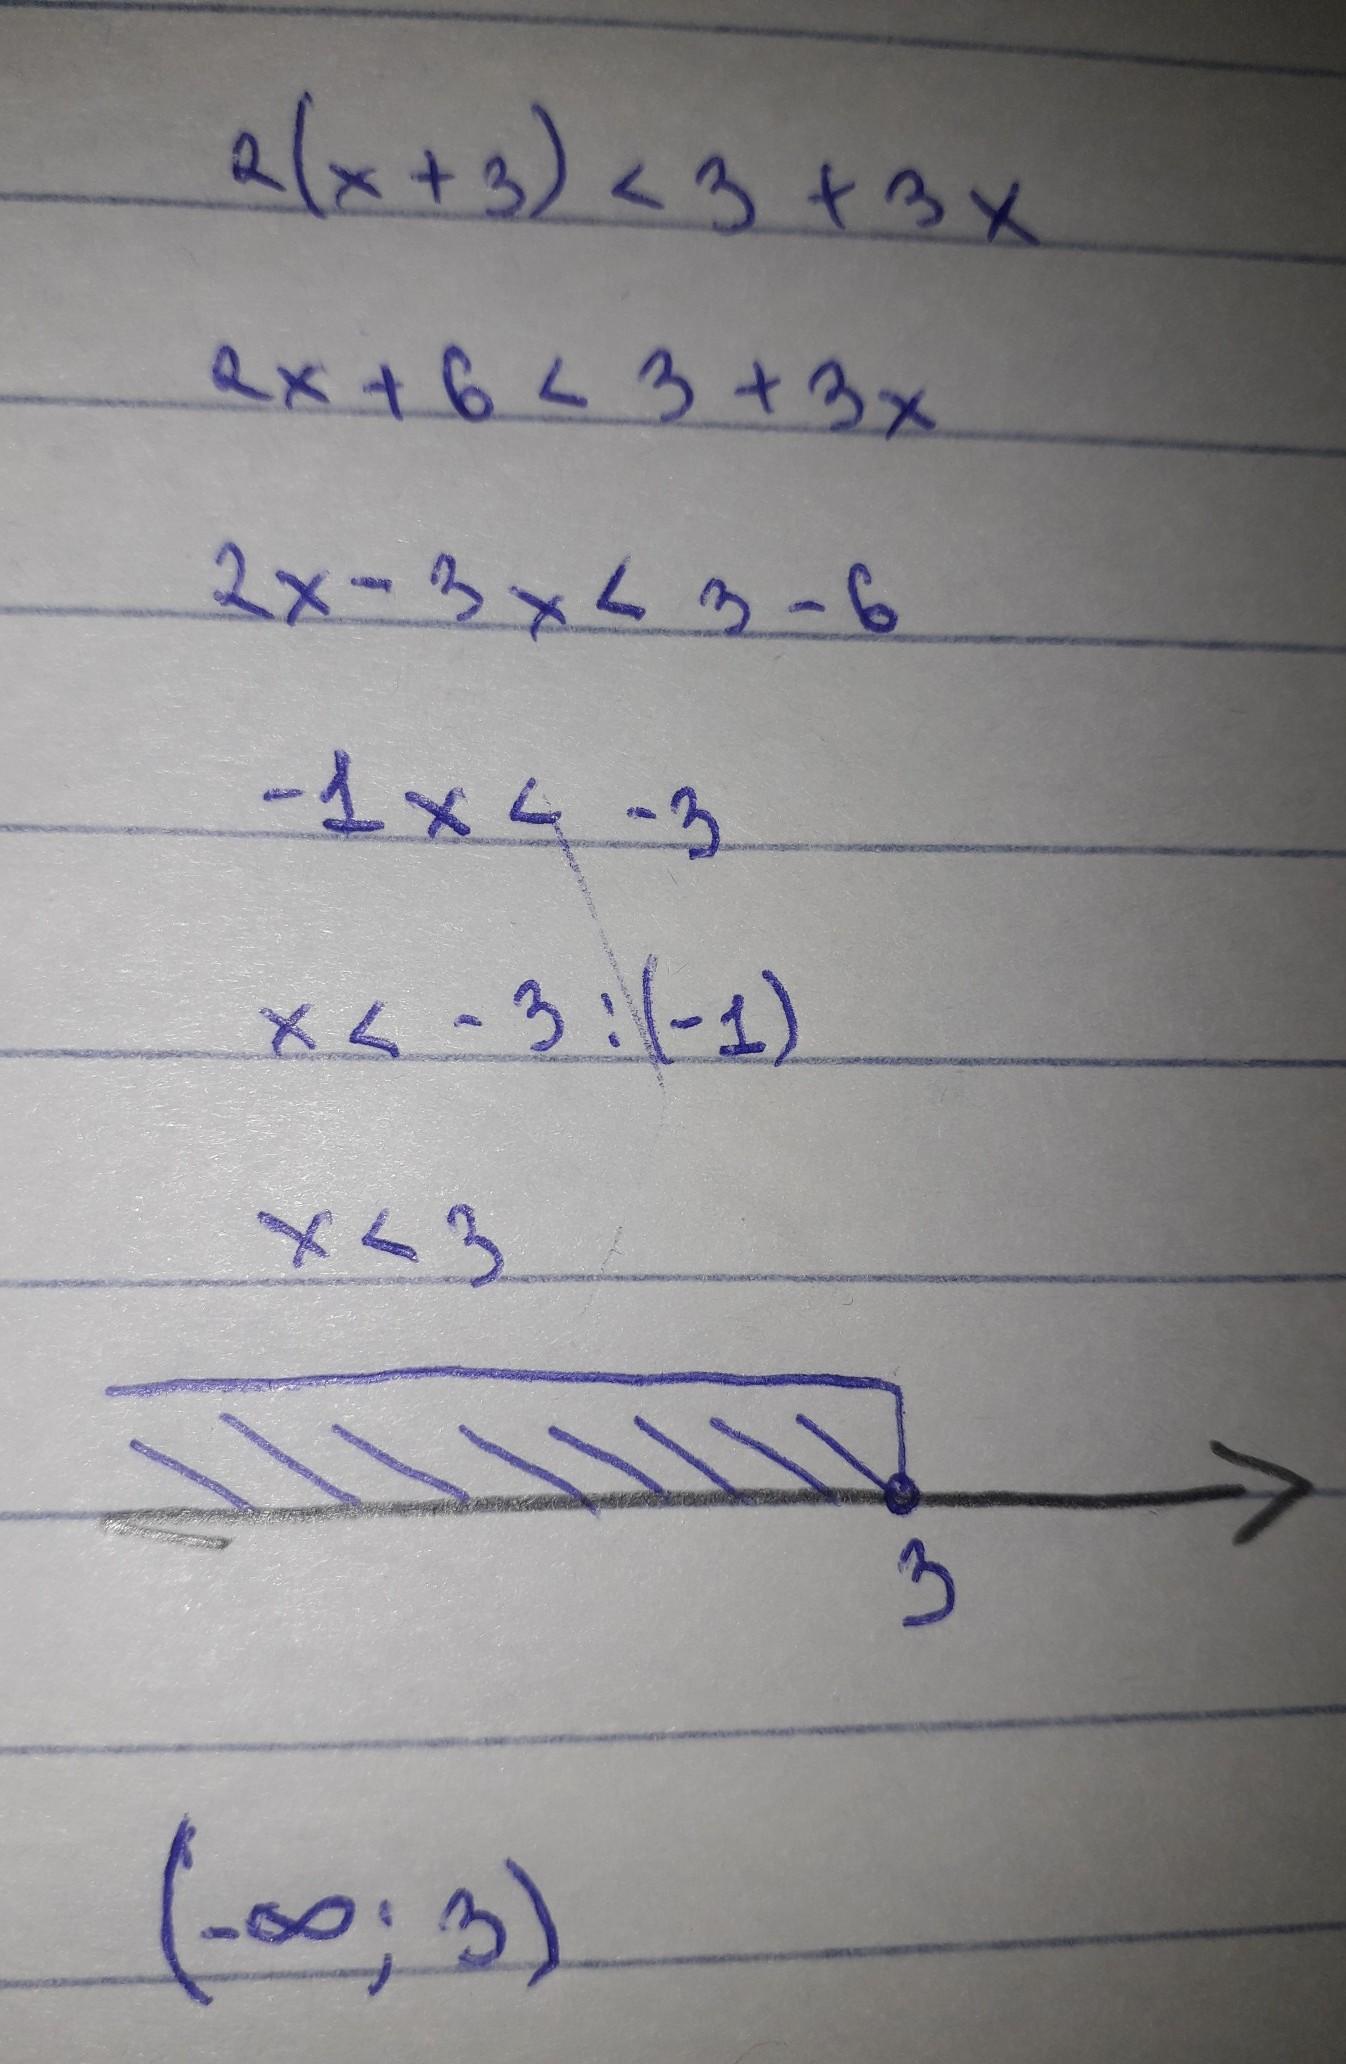 2(x+3) < 3 + 3x
2x + 6 < 3 + 3x
2x - 3x < 3 - 6
-1x < -3
x < -3 : (-1)
x < 3
3
(-∞; 3)